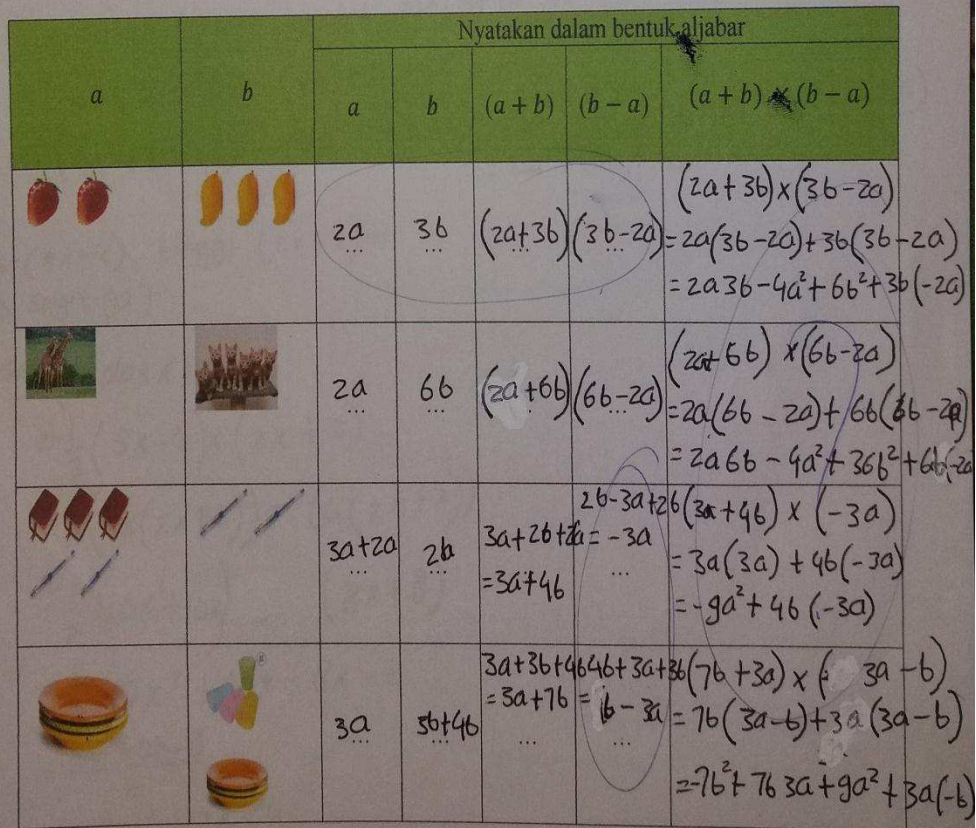 Nyatakan dalam bentuk aljabar
a b a b (a + b) (b − a) (a + b) × (b − a)
2a
...
3b
...
(2a+3b)
...
(3b-2a)
...
(2a+3b)×(3b-2a)
=2a(3b-2a)+3b(3b-2a)
=2a3b-4a²+6b²+3b(-2a)
2a
...
6b
...
(2a+6b)
(6b-2a)
...
(2a+6b) ×(6b-2a)
=2a(6b-2a)+6b(6b-2a)
=2a6b-4a²+36b²+6b(-2a
3a+2a
...
2b
...
3a+2b+2a
=3a+4b
2b-3a+2b
=-3a
...
(3a+4b) × (-3a)
=3a(3a)+4b(-3a)
=-9a²+4b(-3a)
3a
...
3b+4b
...
3a+3b+4b
=3a+7b
...
4b+3a+3b
=b-3a
...
(7b+3a)×( 3a-b)
=7b(3a-b)+3a(3a-b)
=-7b²+7b3a+9a²+3a(-b)